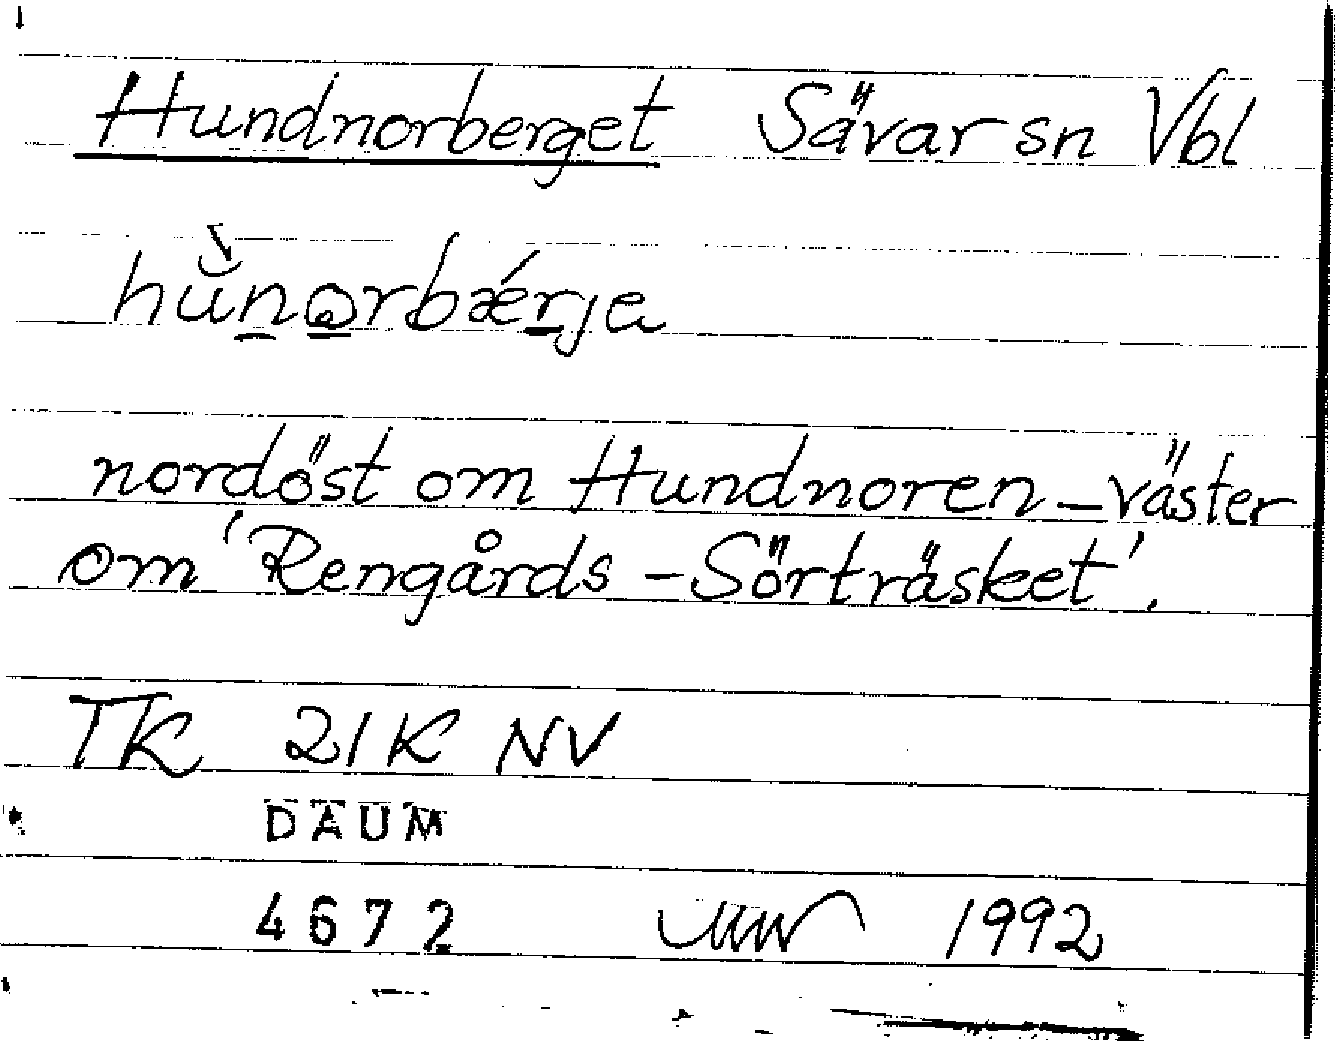 Hundnorberget Sävar sn Vbl
nordöst om Hundnoren - väster
om 'Rengårds - Sörträsket'.
TK 21K NV
DAUM
4672 1992